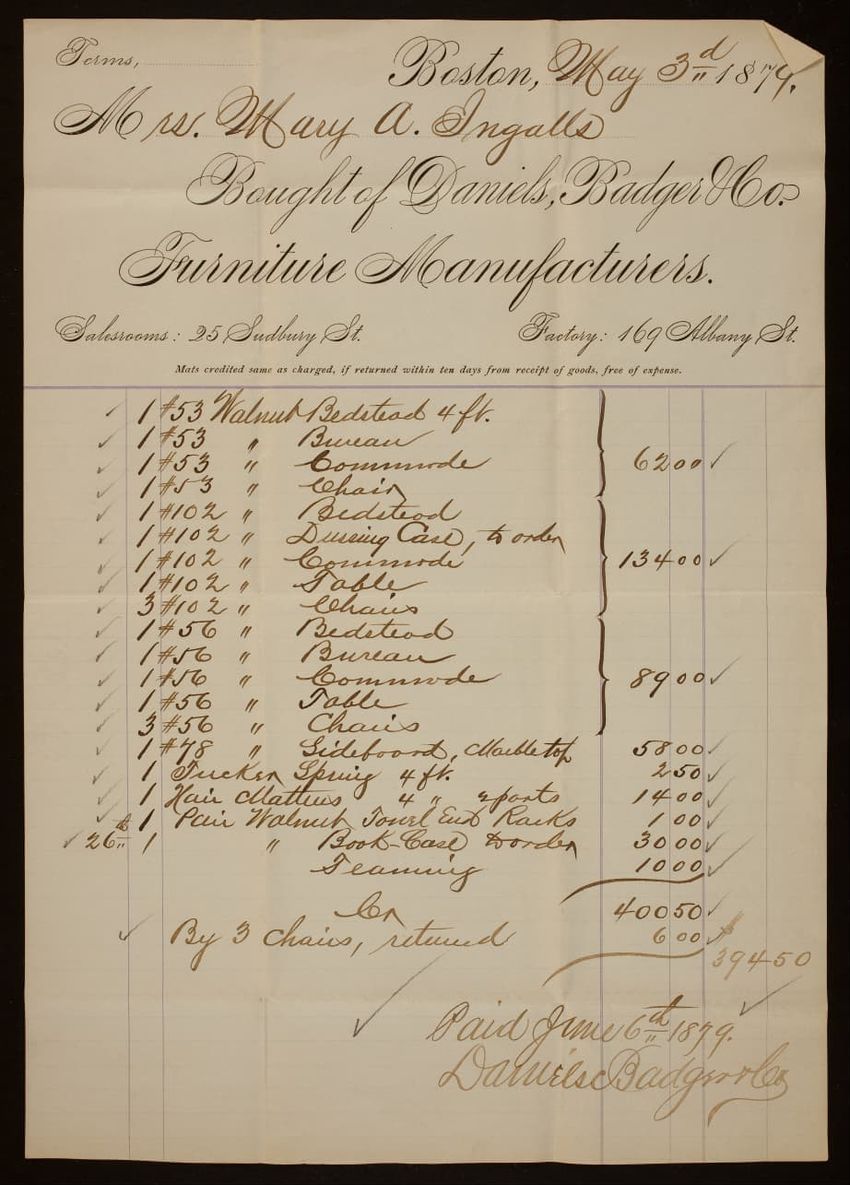 Terms,
Boston, May 3d 1879.
Mrs. Mary A. Ingalls
Bought of Daniels, Badger & Co.
Furniture Manufacturers.
Salesrooms: 25 Sudbury St. Factory: 169 Albany St.
Mats credited same as charged, if returned within ten days from receipt of goods, free of expense.
1 #53 Walnut Bedstead 4 ft.
1 #53 " Bureau
1 #53 " Commode 62 00
1 #53 " Chair
1 #102 " Bedstead
1 #102 " Dressing Case, to order
1 #102 " Commode 134 00
1 #102 " Table
3 #102 " Chairs
1 #56 " Bedstead
1 #56 " Bureau
1 #56 " Commode 89 00
1 #56 " Table
3 #56 " Chairs
1 #78 " Sideboard, Marble top 58 00
1 Tucker Spring 4 ft. 2 50
1 Hair Mattress 4 " 2 parts 14 00
1 Pair Walnut Towel End Racks 1 00
26th 1 " Book-Case to order 30 00
Teaming 10 00
400 50
Cr
By 3 Chairs, returned 6 00
$ 394 50
Paid June 6th 1879.
Daniels Badger & Co